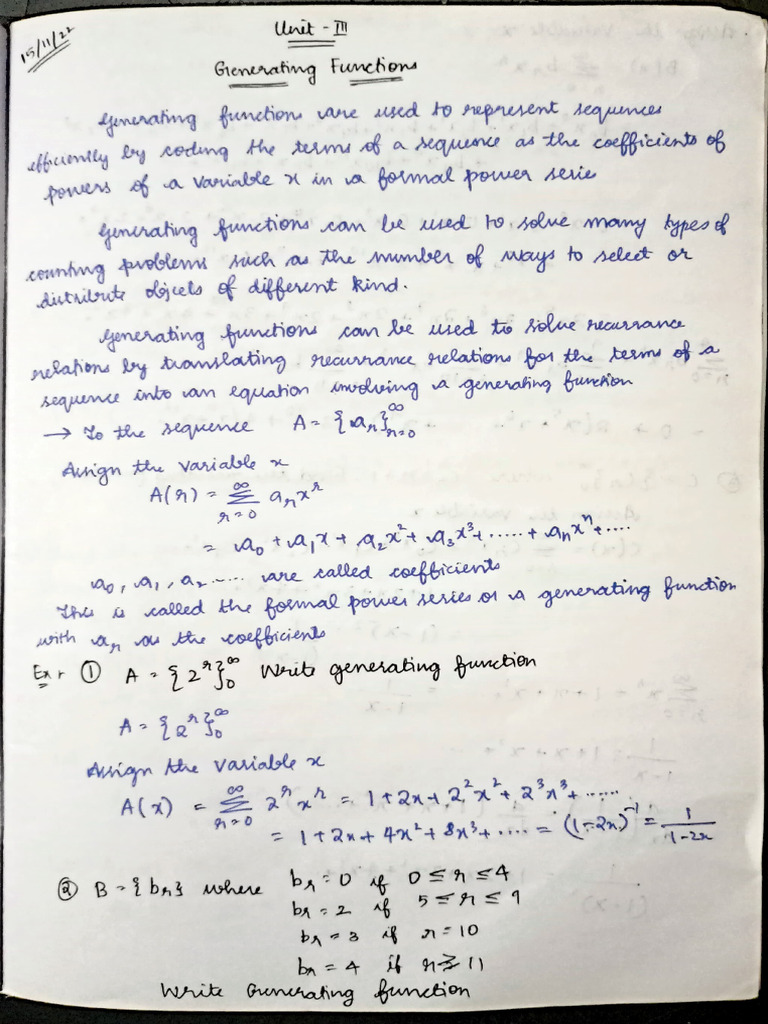 15/11/22
Unit - III
Generating Functions
Generating functions are used to represent sequences
efficiently by coding the terms of a sequence as the coefficients of
powers of a variable x in a formal power series
Generating functions can be used to solve many types of
counting problems such as the number of ways to select or
distribute objects of different kind.
Generating functions can be used to solve recurrance
relations by translating recurrance relations for the terms of a
sequence into an equation involving a generating function
→ To the sequence A = {aᵣ}∞ᵣ₌₀
Assign the variable x
A(x) = ∞Σᵣ₌₀ aᵣxʳ
= a₀ + a₁x + a₂x² + a₃x³ + ...... + aₙxⁿ + ....
a₀, a₁, a₂ ..... are called coefficients
This is called the formal power series or a generating function
with aᵣ as the coefficients
Ex: ① A = {2ʳ}∞₀ Write generating function
A = {2ʳ}∞₀
Assign the variable x
A(x) = ∞Σᵣ₌₀ 2ʳxʳ = 1 + 2x + 2²x² + 2³x³ + ......
= 1 + 2x + 4x² + 8x³ + .... = (1-2x)⁻¹ = 1/(1-2x)
② B = {bᵣ} where bᵣ = 0 if 0 ≤ r ≤ 4
bᵣ = 2 if 5 ≤ r ≤ 9
bᵣ = 3 if r = 10
bᵣ = 4 if r ≥ 11
Write Generating function